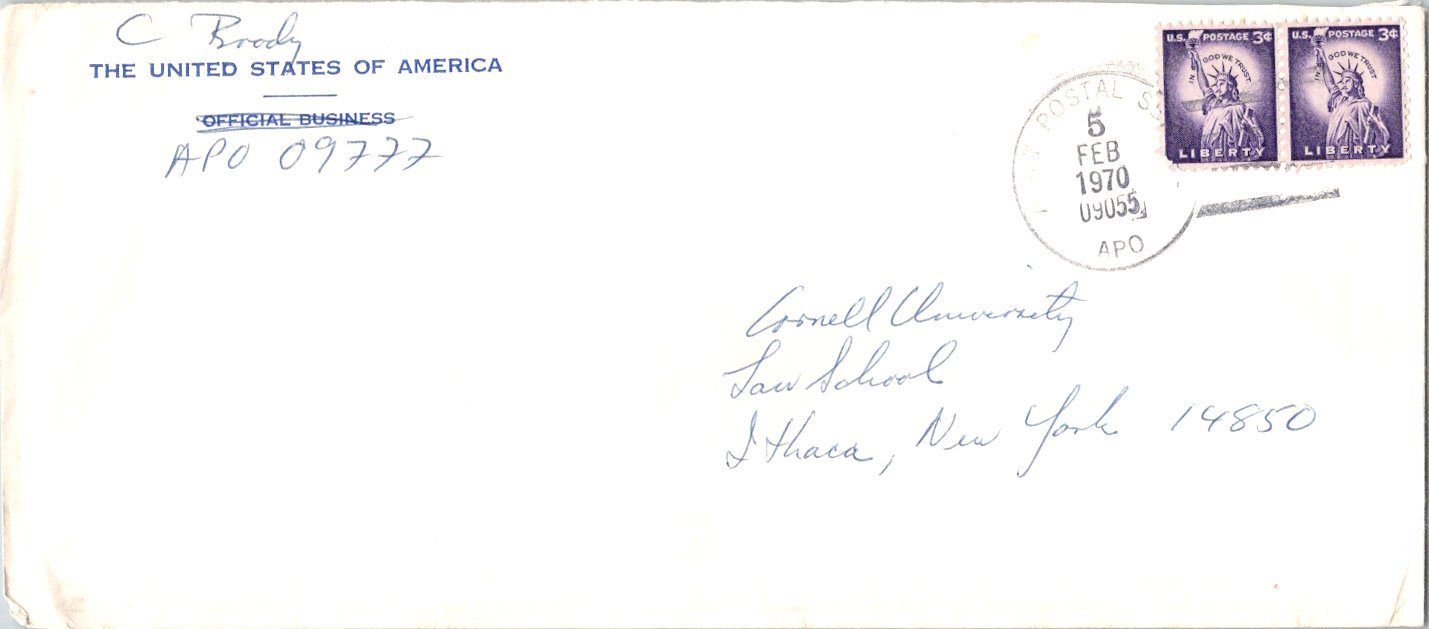 C Brody
THE UNITED STATES OF AMERICA
OFFICIAL BUSINESS
APO 09777
POSTAL
5
FEB
1970
09055
APO
U.S. POSTAGE 3¢
IN GOD WE TRUST
LIBERTY
U.S. POSTAGE 3¢
IN GOD WE TRUST
LIBERTY
Cornell University
Law School
Ithaca, New York 14850